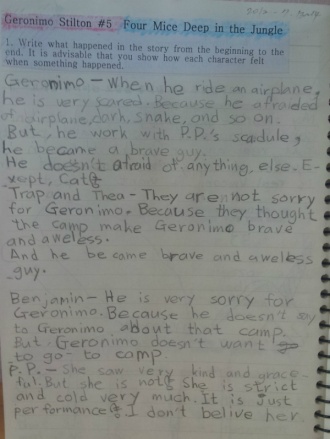 Geronimo Stilton #5 Four Mice Deep in the Jungle
1. Write what happened in the story from the beginning to
end. It is advisable that you show how each character felt
when something happened.
Geronimo - When he ride an airplane,
he is very scared. Because he afraided
of airplane, dark, snake, and so on.
But, he work with P.P.'s scadule,
he became a brave guy.
He doesn't afraid of anything else. E-
xept, Cat
Trap and Thea - They are not sorry
for Geronimo. Because they thought
the camp make Geronimo brave
and aweless.
And he be same brave and aweless
guy.
Benjamin - He is very sorry for
Geronimo. Because he doesn't say
to Geronimo about that camp.
But Geronimo doesn't want
to go to camp.
P.P. - She saw very kind and grace-
ful. But she is not She is strict
and cold very much. It is Just
performance. I don't belive her.